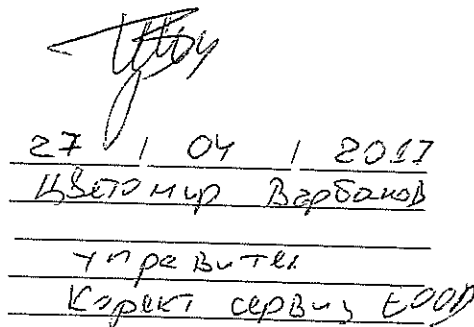 27 / 04 / 2017
Цветомир Върбанов
управител
Корект сервиз ЕООД